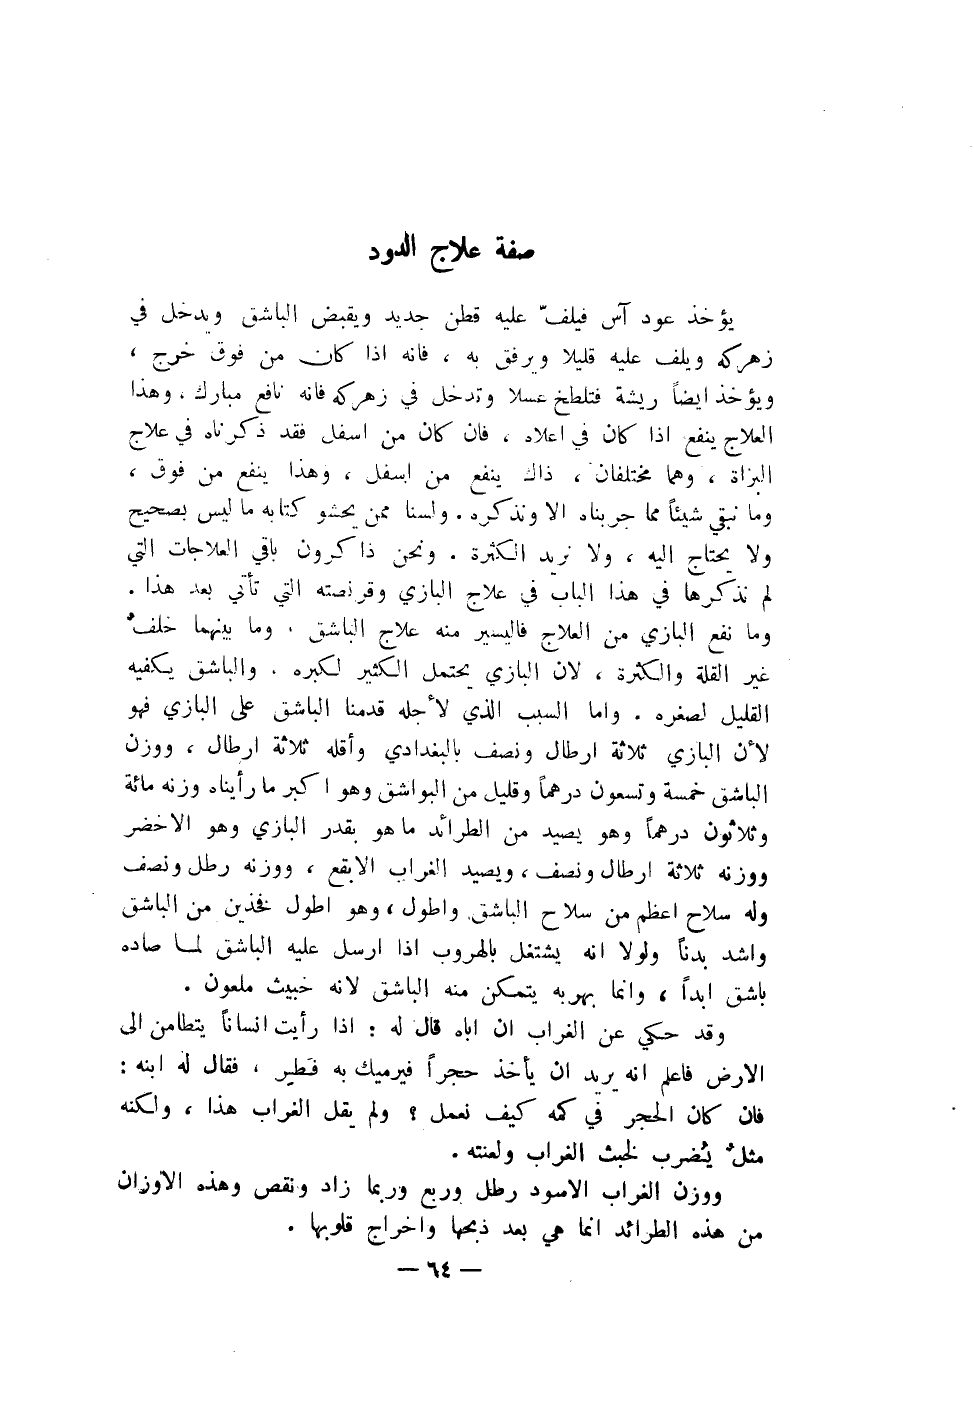 صفة علاج الدود
يؤخذ عود آس فيلفّ عليه قطن جديد ويقبض الباشق ويدخل في
زهركه ويلف عليه قليلا ويرفق به ، فانه اذا كان من فوق خرج ،
ويؤخذ ايضاً ريشة فتلطخ عسلا وتدخل في زهركه فانه نافع مبارك ، وهذا
العلاج ينفع اذا كان في اعلاه ، فان كان من اسفل فقد ذكرناه في علاج
البزاة ، وهما مختلفان ، ذاك ينفع من اسفل ، وهذا ينفع من فوق ،
وما نبقي شيئاً مما جربناه الا ونذكره . ولسنا ممن يحشو كتابه ما ليس بصحيح
ولا يحتاج اليه ، ولا نريد الكثرة . ونحن ذاكرون باقي العلاجات التي
لم نذكرها في هذا الباب في علاج البازي وقرنصته التي تأتي بعد هذا .
وما نفع البازي من العلاج فاليسير منه علاج الباشق . وما بينهما خلفٌ
غير القلة والكثرة ، لان البازي يحتمل الكثير لكبره . والباشق يكفيه
القليل لصغره . واما السبب الذي لأجله قدمنا الباشق على البازي فهو
لأن البازي ثلاثة ارطال ونصف بالبغدادي وأقله ثلاثة ارطال ، ووزن
الباشق خمسة وتسعون درهماً وقليل من البواشق وهو اكبر ما رأيناه وزنه مائة
وثلاثون درهماً وهو يصيد من الطرائد ما هو بقدر البازي وهو الاخضر
ووزنه ثلاثة ارطال ونصف ، ويصيد الغراب الابقع ، ووزنه رطل ونصف
وله سلاح اعظم من سلاح الباشق واطول ، وهو اطول فخذين من الباشق
واشد بدناً ولولا انه يشتغل بالهروب اذا ارسل عليه الباشق لما صاده
باشق ابداً ، وانما بهربه يتمكن منه الباشق لانه خبيث ملعون .
وقد حكي عن الغراب ان اباه قال له : اذا رأيت انساناً يتطامن الى
الارض فاعلم انه يريد ان يأخذ حجراً فيرميك به فَطِر ، فقال له ابنه :
فان كان الحجر في كمه كيف نعمل ؟ ولم يقل الغراب هذا ، ولكنه
مثلٌ يُضرب لخبث الغراب ولعنته .
ووزن الغراب الاسود رطل وربع وربما زاد ونقص وهذه الاوزان
من هذه الطرائد انما هي بعد ذبحها واخراج قلوبها .
— ٦٤ —